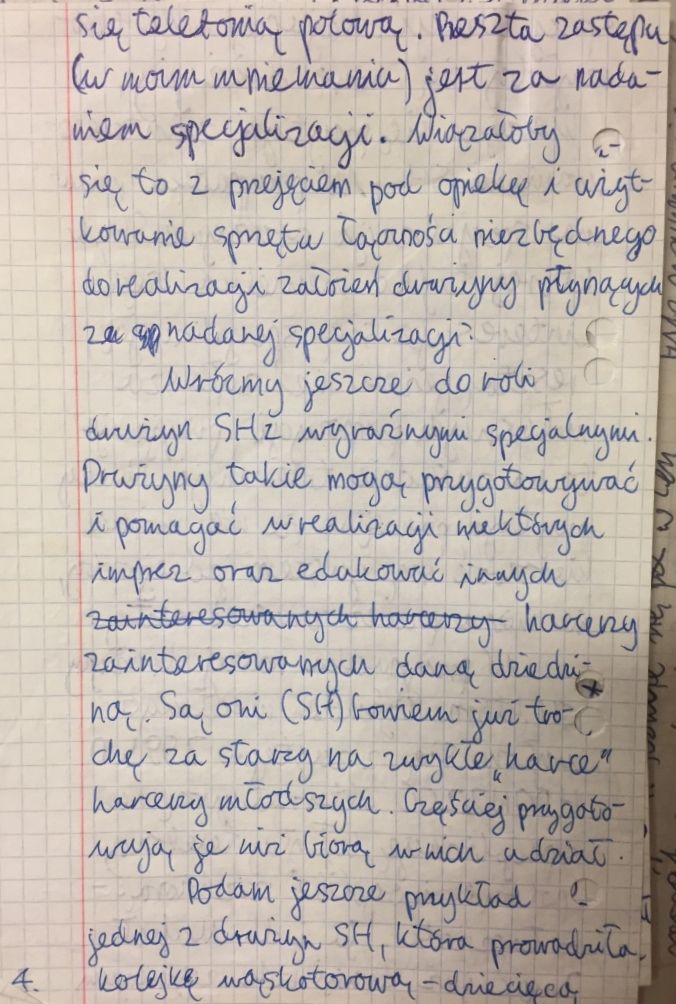 się telefonią polową. Reszta zastępu
(w moim mniemaniu) jest za nada-
niem specjalizacji. Wiązałoby
się to z przejęciem pod opiekę i użyt-
kowanie sprzętu łączności niezbędnego
do realizacji założeń drużyny płynących
za nadanej specjalizacji.
Wróćmy jeszcze do roli
drużyn SH z wyraźnymi specjalnymi.
Drużyny takie mogą przygotowywać
i pomagać w realizacji niektórych
imprez oraz edukować innych
zainteresowanych harcerzy harcerzy
zainteresowanych daną dziedzi-
ną. Są oni (SH) bowiem już tro-
chę za starzy na zwykłe „harce"
harcerzy młodszych. Częściej przygoto-
wują je niż biorą w nich udział.
Podam jeszcze przykład
jednej z drużyn SH, która prowadziła
4. kolejkę wąskotorową - dziecięcą